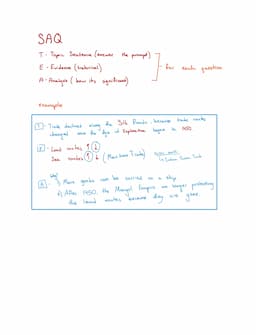 SAQ
T - Topic Sentence (answer the prompt)
E - Evidence (historical)
A - Analysis (how its significant)
- for each question
example
T - Trade declines along the Silk Roads because trade routes
changed once the Age of Exploration began in 1450
E - Land routes ↑ ↓
Sea routes ↑ ↓ (Maritime Trade)
Indian Ocean Trade
why?
A - 1) More goods can be carried on a ship
2) After 1450, the Mongol Empire no longer protecting
the land routes because they are gone